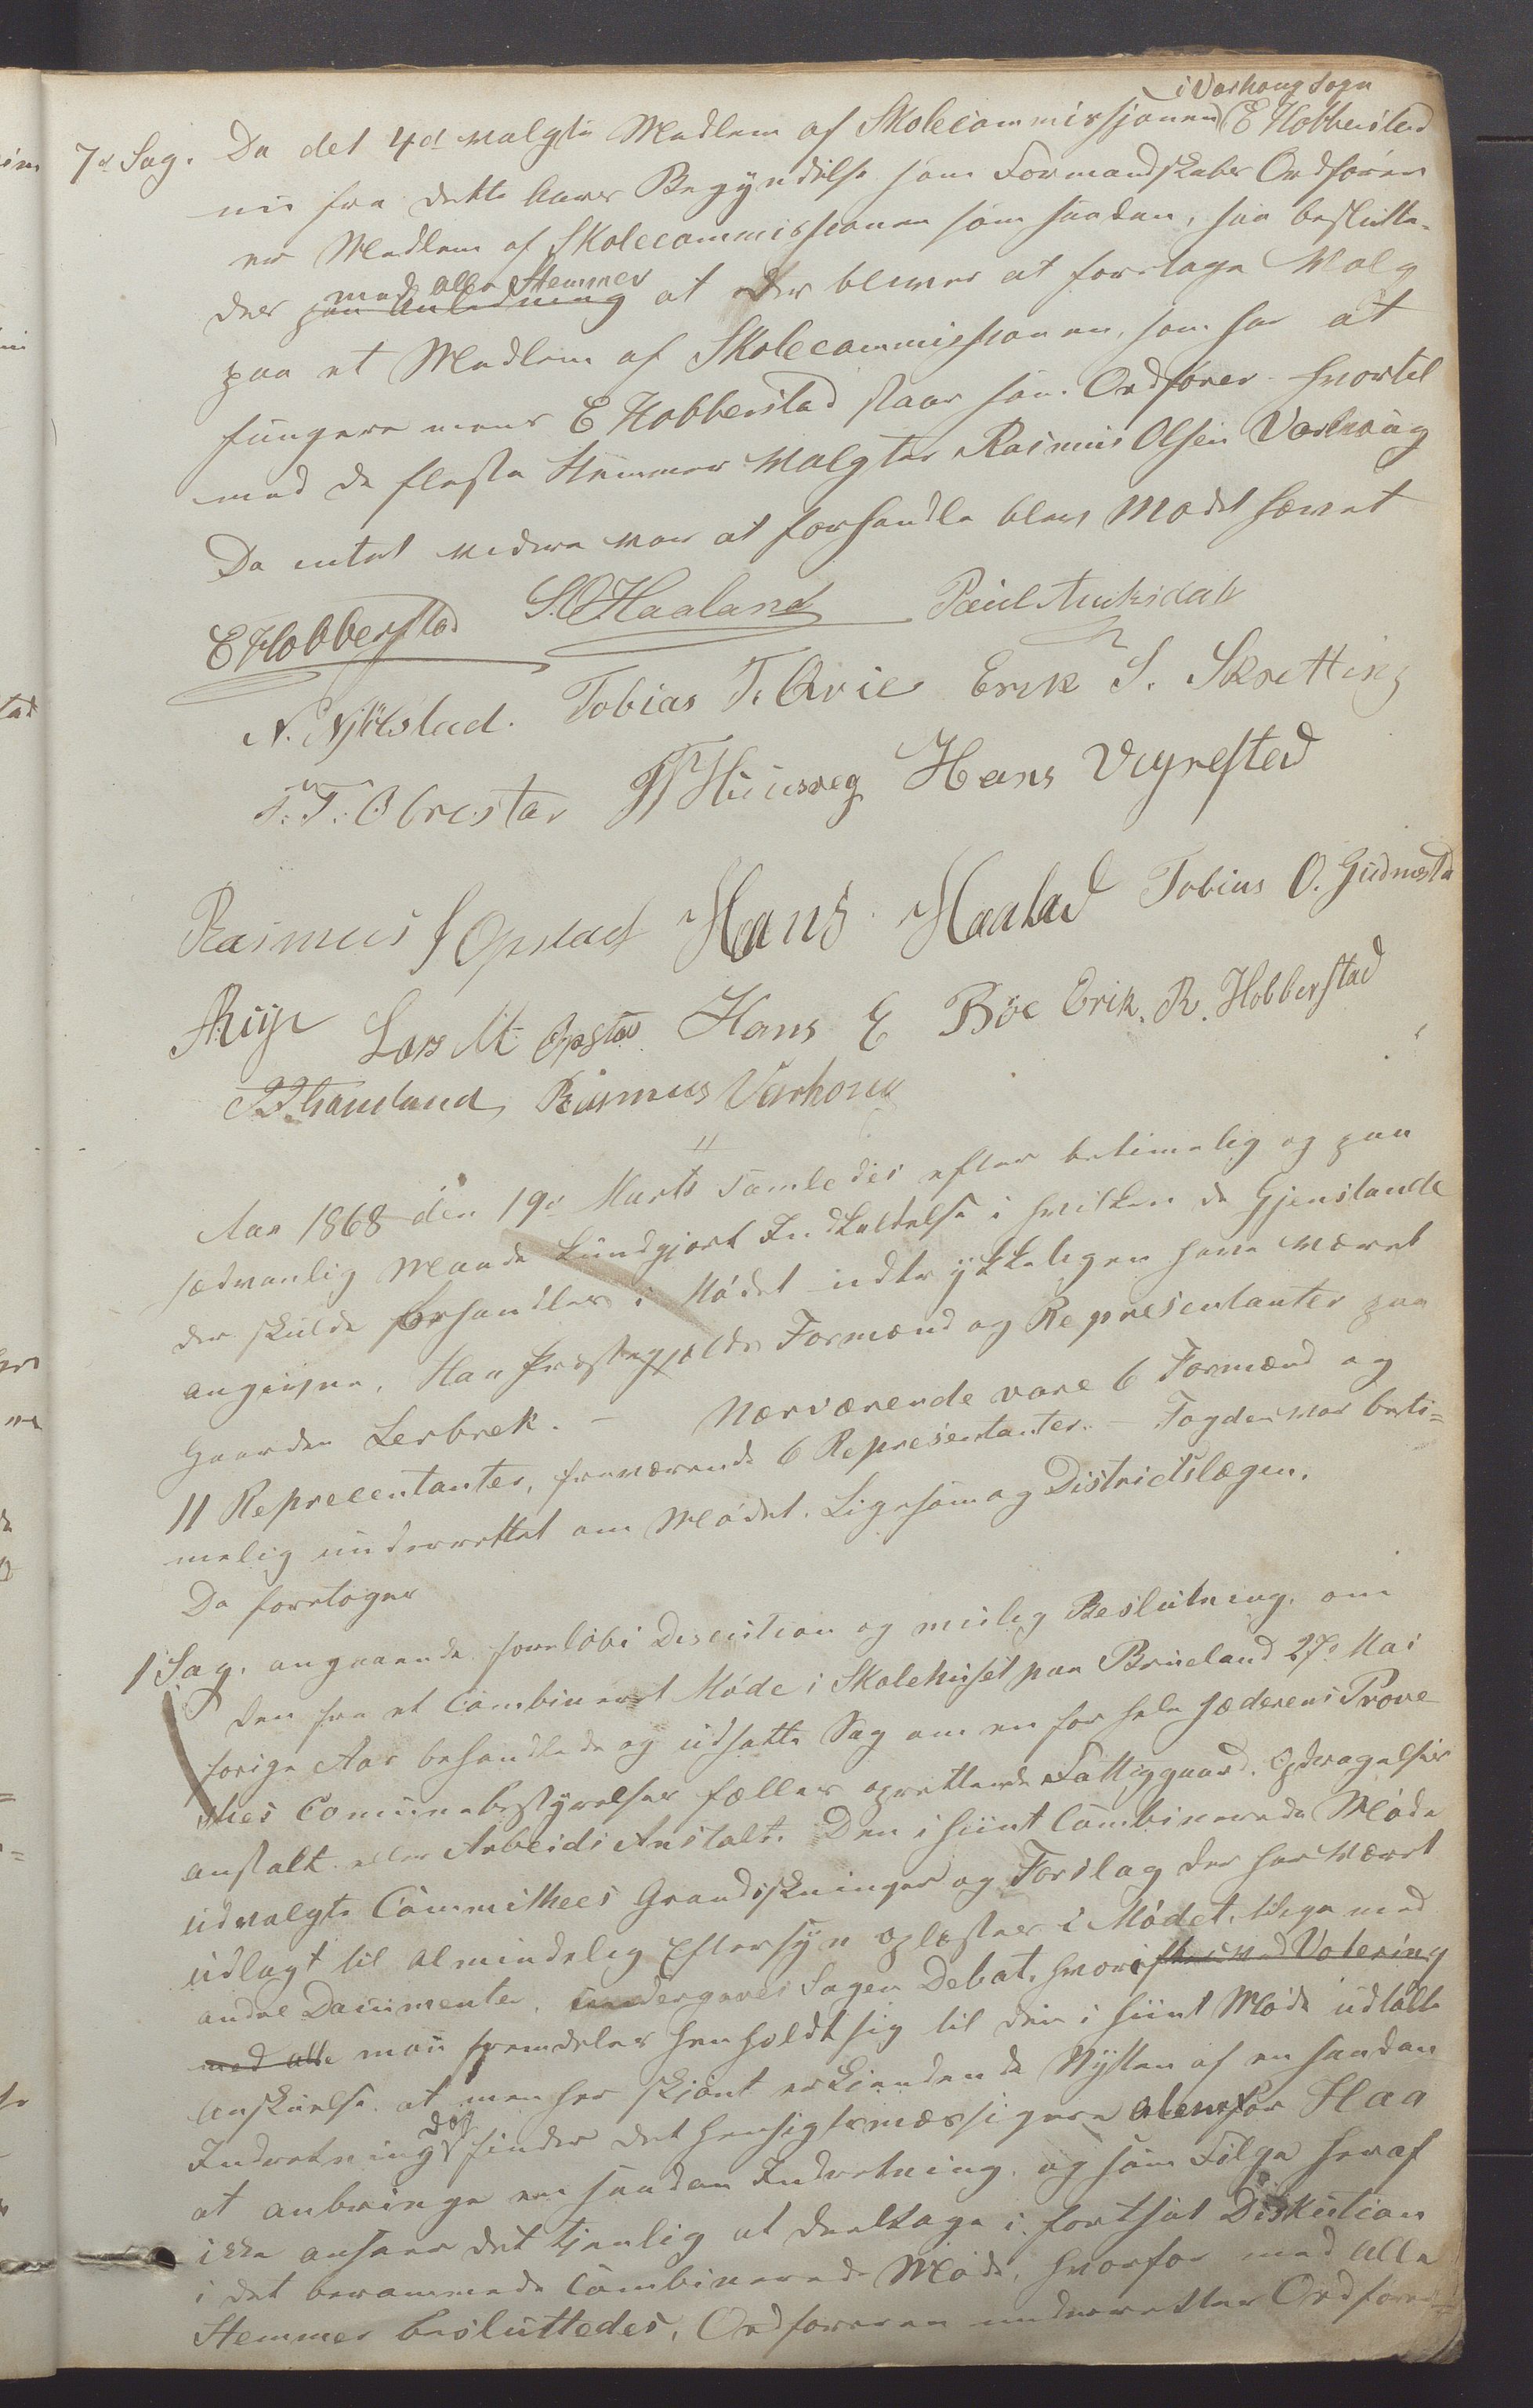 i Varhoug Sogn
7de Sag. Da det 4de valgte Medlem af Skolecommissjonen E Hobberstad
nu fra dette Aars Begyndelse som Formandskabs Ordfører
er Medlem af Skolecommissionen som saadan, saa beslutte-
med alle Stemmer
des paa Anledning at der bliver at foretage Valg
paa et Medlem af Skolecommissionen, som har at
fungere mens E Hobberstad staar som Ordfører hvortil
med de fleste Stemmer Valgtes Rasmus Olsen Varhoug
Da intet videre var at forhandle blev Mødet hævet
E Hobberstad S. O Haaland Paul Auksdal
N. Njølstad. Tobias T. Qvie Erik S. Skretting
T. T. Obrestad Huusveg Hans Vigrestad
Rasmus J Opstad Hans Haaland Tobias O. Gudmesta
ARiye Lars M. Opstad Hans E Bøe Erik. R. Hobberstad
Haarland Rasmus Varhoug
"
Aar 1868 den 19de Marts samledes efter betimelig og paa
sædvanlig Maade kundgjort Indkaldelse i hvilken de Gjenstande
der skulde forhandles i Mødet udtrykkeligen have været
angivne. Haa Præstegjælds Formænd og Representanter paa
Gaarden Lerbrek. – Nærværende vare 6 Formænd og
11 Repreentanter, fraværende 6 Representanter. – Fogden var beti=
melig underrettet om Mødet. Ligesom og Districtslægen.
Da foretoges
1 Sag. angaaende foreløbi Discution og mulig Beslutning, om
den fra et Combineret Møde i Skolehuset paa Brueland 27de Mai
forige Aar behandlede og udsatte Sag om en for hele Jæderens Prove
sties Comunebestyrelser fælles oprettende Fattiggaard. Opdragelses
anstalt eller Arbeids Anstalt. Den i hiint Combinerede Møde
udvalgte Committees Grandskninger og Forslag der har Været
udlagt til Almindelig Eftersyn oplæstes i Mødet, tilige med
andre Documenter, undergaves Sagen Debat, hvorefter ved Votering
med alle man fremdeles henholdt sig til den i hiint Møde udtalte
Anskuelse. at man her skjønt erkjendende Nytten af en saadan
dog
Indretning finder det hensigtsmæssigere alene for Haa
at anbringe en saadan Indretning. og som Følge heraf
ikke anseer det tjenlig at deeltage i fortsat Diskution
i det berammede Combinerede Møde, hvorfor med alle
Stemmer besluttedes, Ordføreren underretter Ordføre=